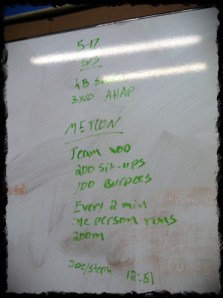 5-17
3x10 AHAP
METCON
Team WOD
200 Sit-ups
100 Burpees
Every 2 min
one person runs
200m
12:51